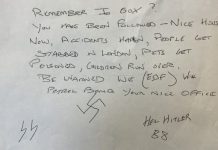 REMEMBER JO COX?
YOU HAVE BEEN FOLLOWED - NICE HOUSE
NOW, ACCIDENTS HAPPEN, PEOPLE GET
STABBED IN LONDON, PETS GET
POISONED, CHILDREN RUN OVER.
BE WARNED WE (EDF) WE
PATROL YOUR NICE OFFICE
HEIL HITLER
88